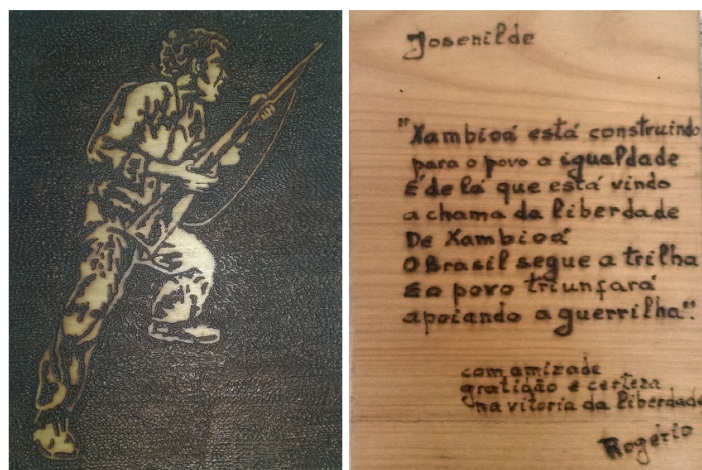 Josenilde
"Xambioá está construindo
para o povo a igualdade
E de lá que está vindo
a chama da liberdade
De Xambioá
O Brasil segue a trilha
E o povo triunfará
apoiando a guerrilha".
com amizade
gratidão e certeza
na vitoria da liberdade
Rogério